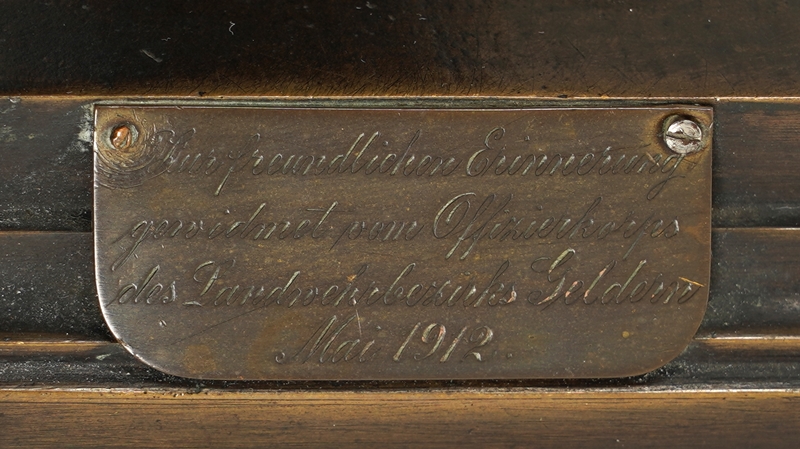 Zur freundlichen Erinnerung
gewidmet vom Offizierkorps
des Landwehrbezirks Geldern
Mai 1912.